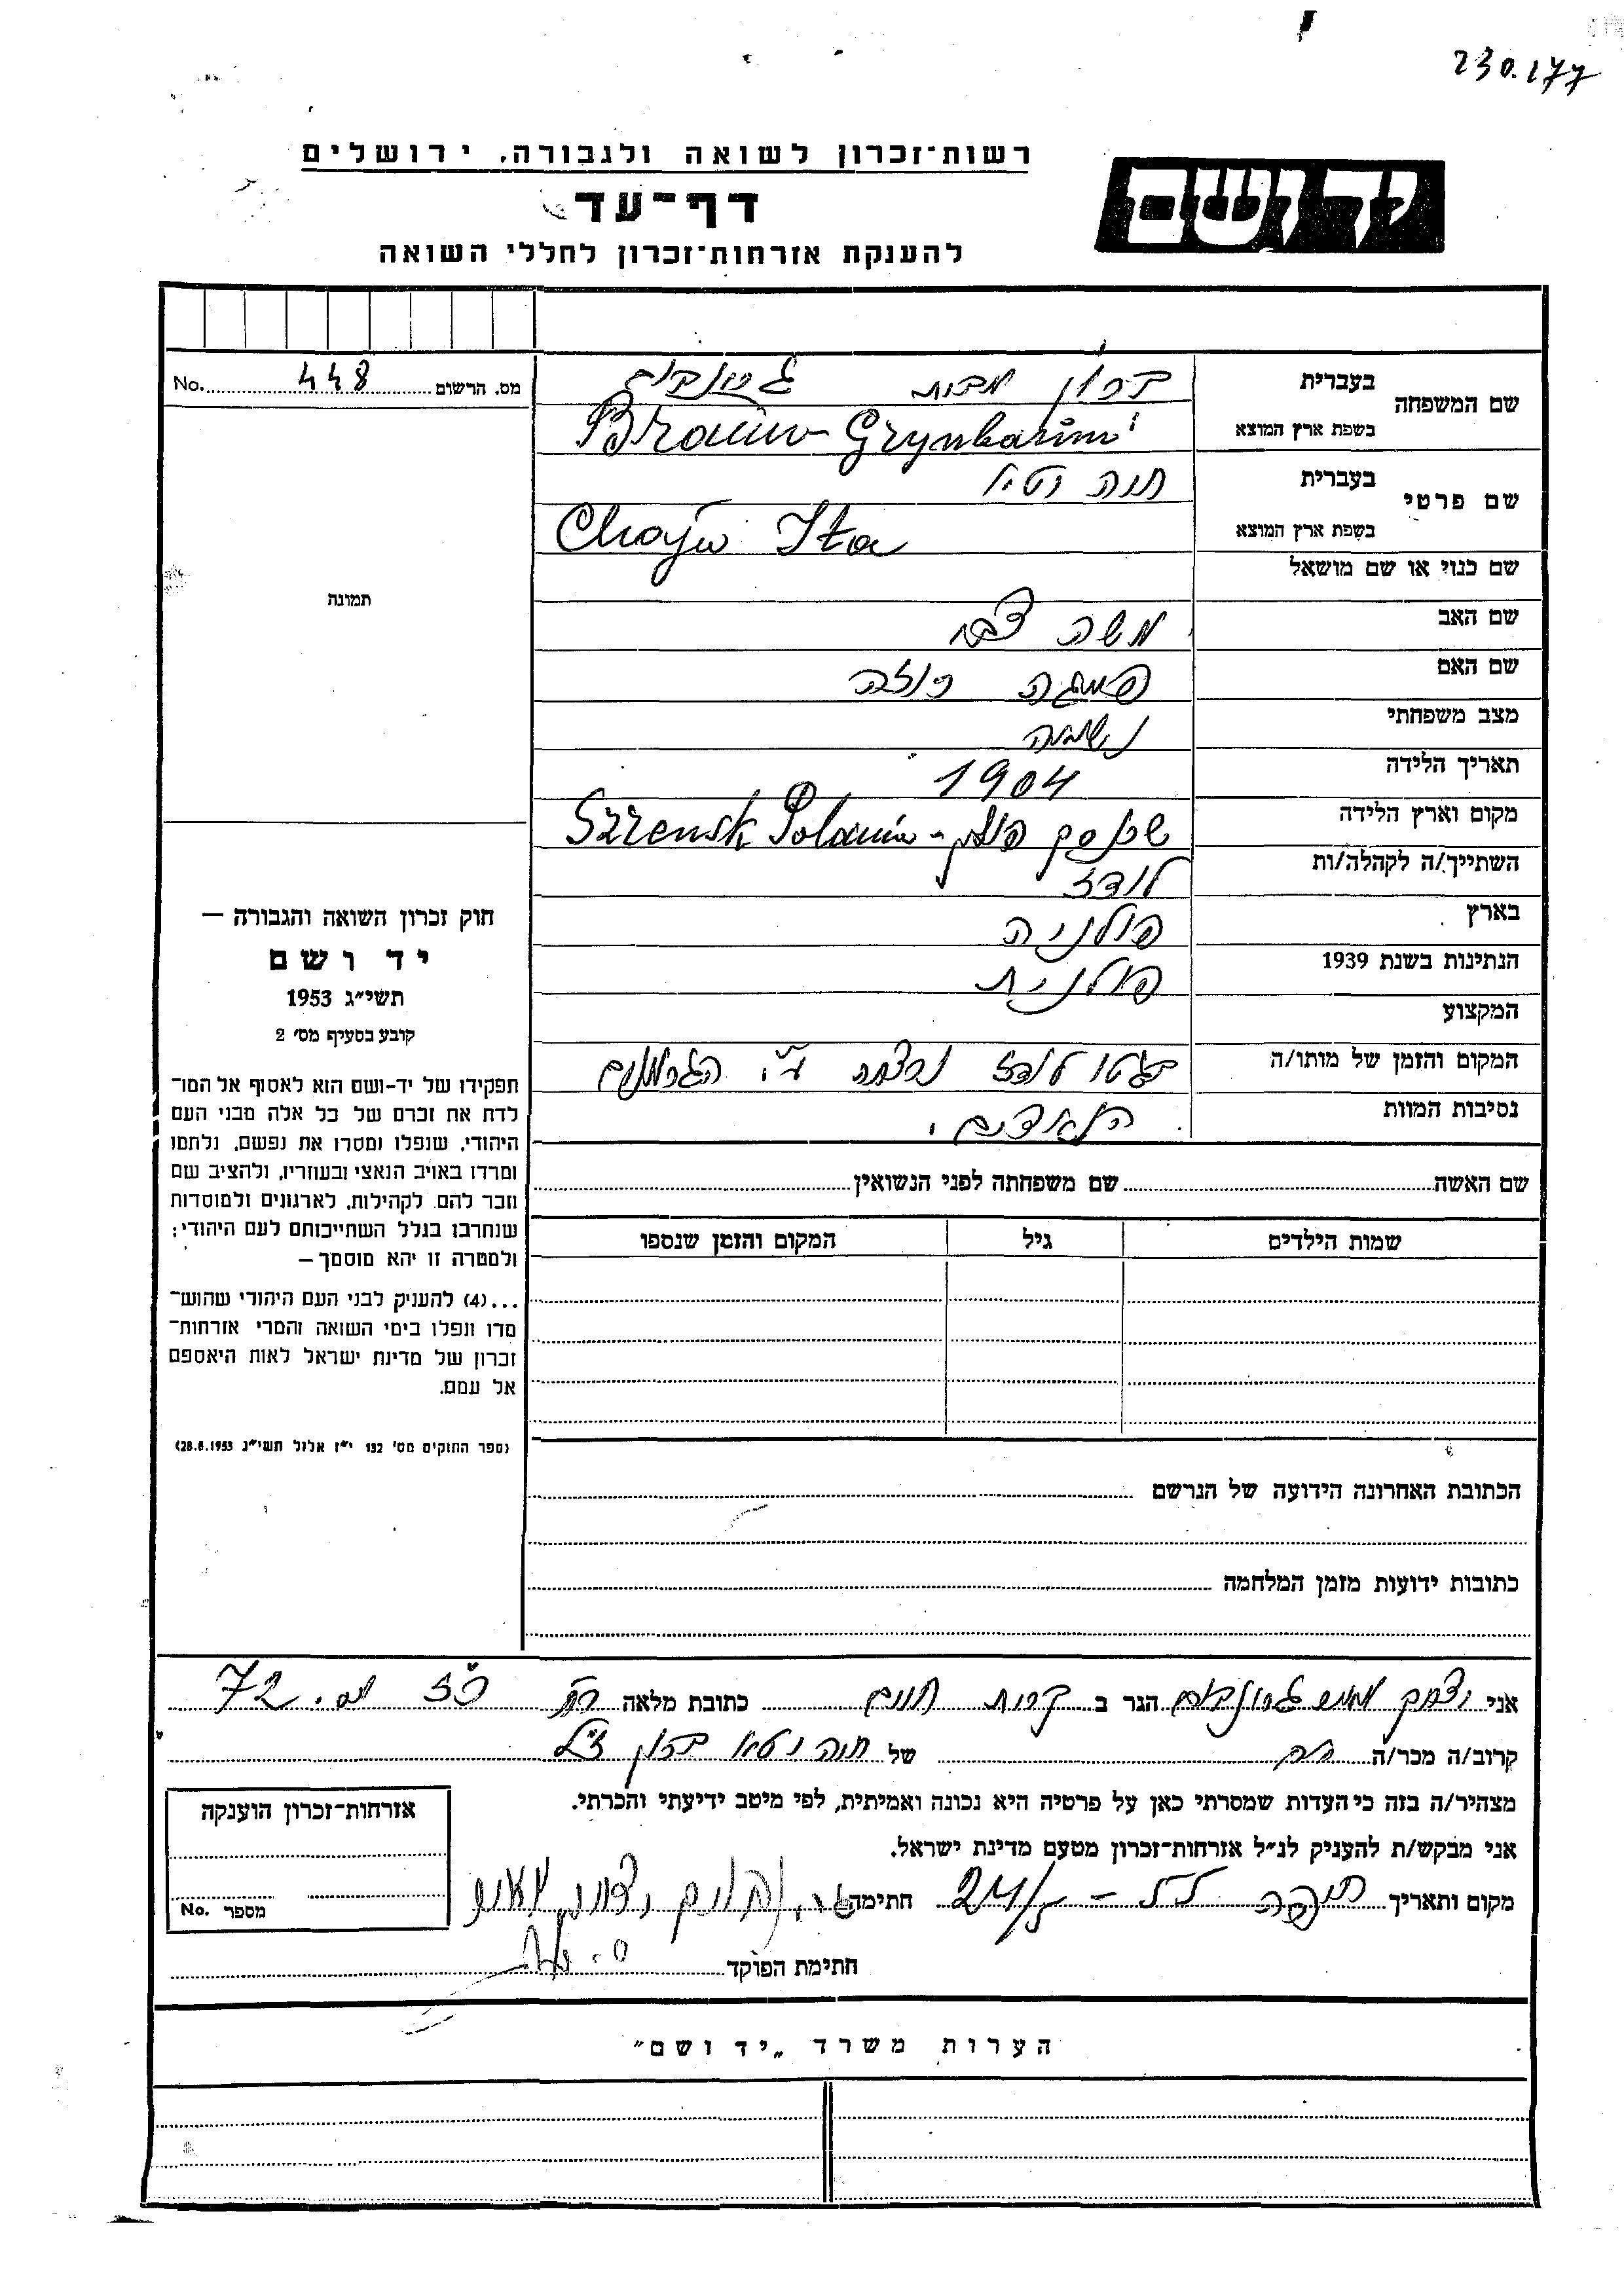 230.177
רשות־זכרון לשואה ולגבורה, ירושלים
יד ושם
דף־עד
להענקת אזרחות־זכרון לחללי השואה
מס. הרשום 448 No.
שם המשפחה
בעברית ברון מבית
בשפת ארץ המוצא Braun-Grynbaum
שם פרטי
בעברית חוה
בשפת ארץ המוצא Chaja Ita
שם כנוי או שם מושאל
שם האב משה צבי
שם האם
מצב משפחתי נשואה
תאריך הלידה 1904
מקום וארץ הלידה פולין - Szrensk Polania
השתייך/ה לקהלה/ות לודז
בארץ פולניה
הנתינות בשנת 1939 פולנית
המקצוע
המקום והזמן של מותו/ה בגטו לודז נרצחה ע"י הגרמנים
נסיבות המוות הנאצים.
תמונה
חוק זכרון השואה והגבורה —
יד ושם
תשי״ג 1953
קובע בסעיף מס׳ 2
תפקידו של יד-ושם הוא לאסוף אל המו־
לדת את זכרם של כל אלה מבני העם
היהודי, שנפלו ומסרו את נפשם, נלחמו
ומרדו באויב הנאצי ובעוזריו, ולהציב שם
וזכר להם, לקהילות, לארגונים ולמוסדות
שנחרבו בגלל השתייכותם לעם היהודי;
ולמטרה זו יהא מוסמך —
...(4) להעניק לבני העם היהודי שהוש־
מדו ונפלו בימי השואה והמרי אזרחות־
זכרון של מדינת ישראל לאות היאספם
אל עמם.
(ספר החוקים מס׳ 132 י״ז אלול תשי״ג 28.8.1953)
שם האשה שם משפחתה לפני הנשואין
שמות הילדים גיל המקום והזמן שנספו
הכתובת האחרונה הידועה של הנרשם
כתובות ידועות מזמן המלחמה
אני הגר ב קרית חיים כתובת מלאה 72
קרוב/ה מכר/ה של חוה ברון ז"ל
מצהיר/ה בזה כי העדות שמסרתי כאן על פרטיה היא נכונה ואמיתית, לפי מיטב ידיעתי והכרתי.
אני מבקש/ת להעניק לנ״ל אזרחות־זכרון מטעם מדינת ישראל.
מקום ותאריך חיפה 24/5 - חתימה
חתימת הפוקד
אזרחות־זכרון הוענקה
מספר No.
הערות משרד „יד ושם״